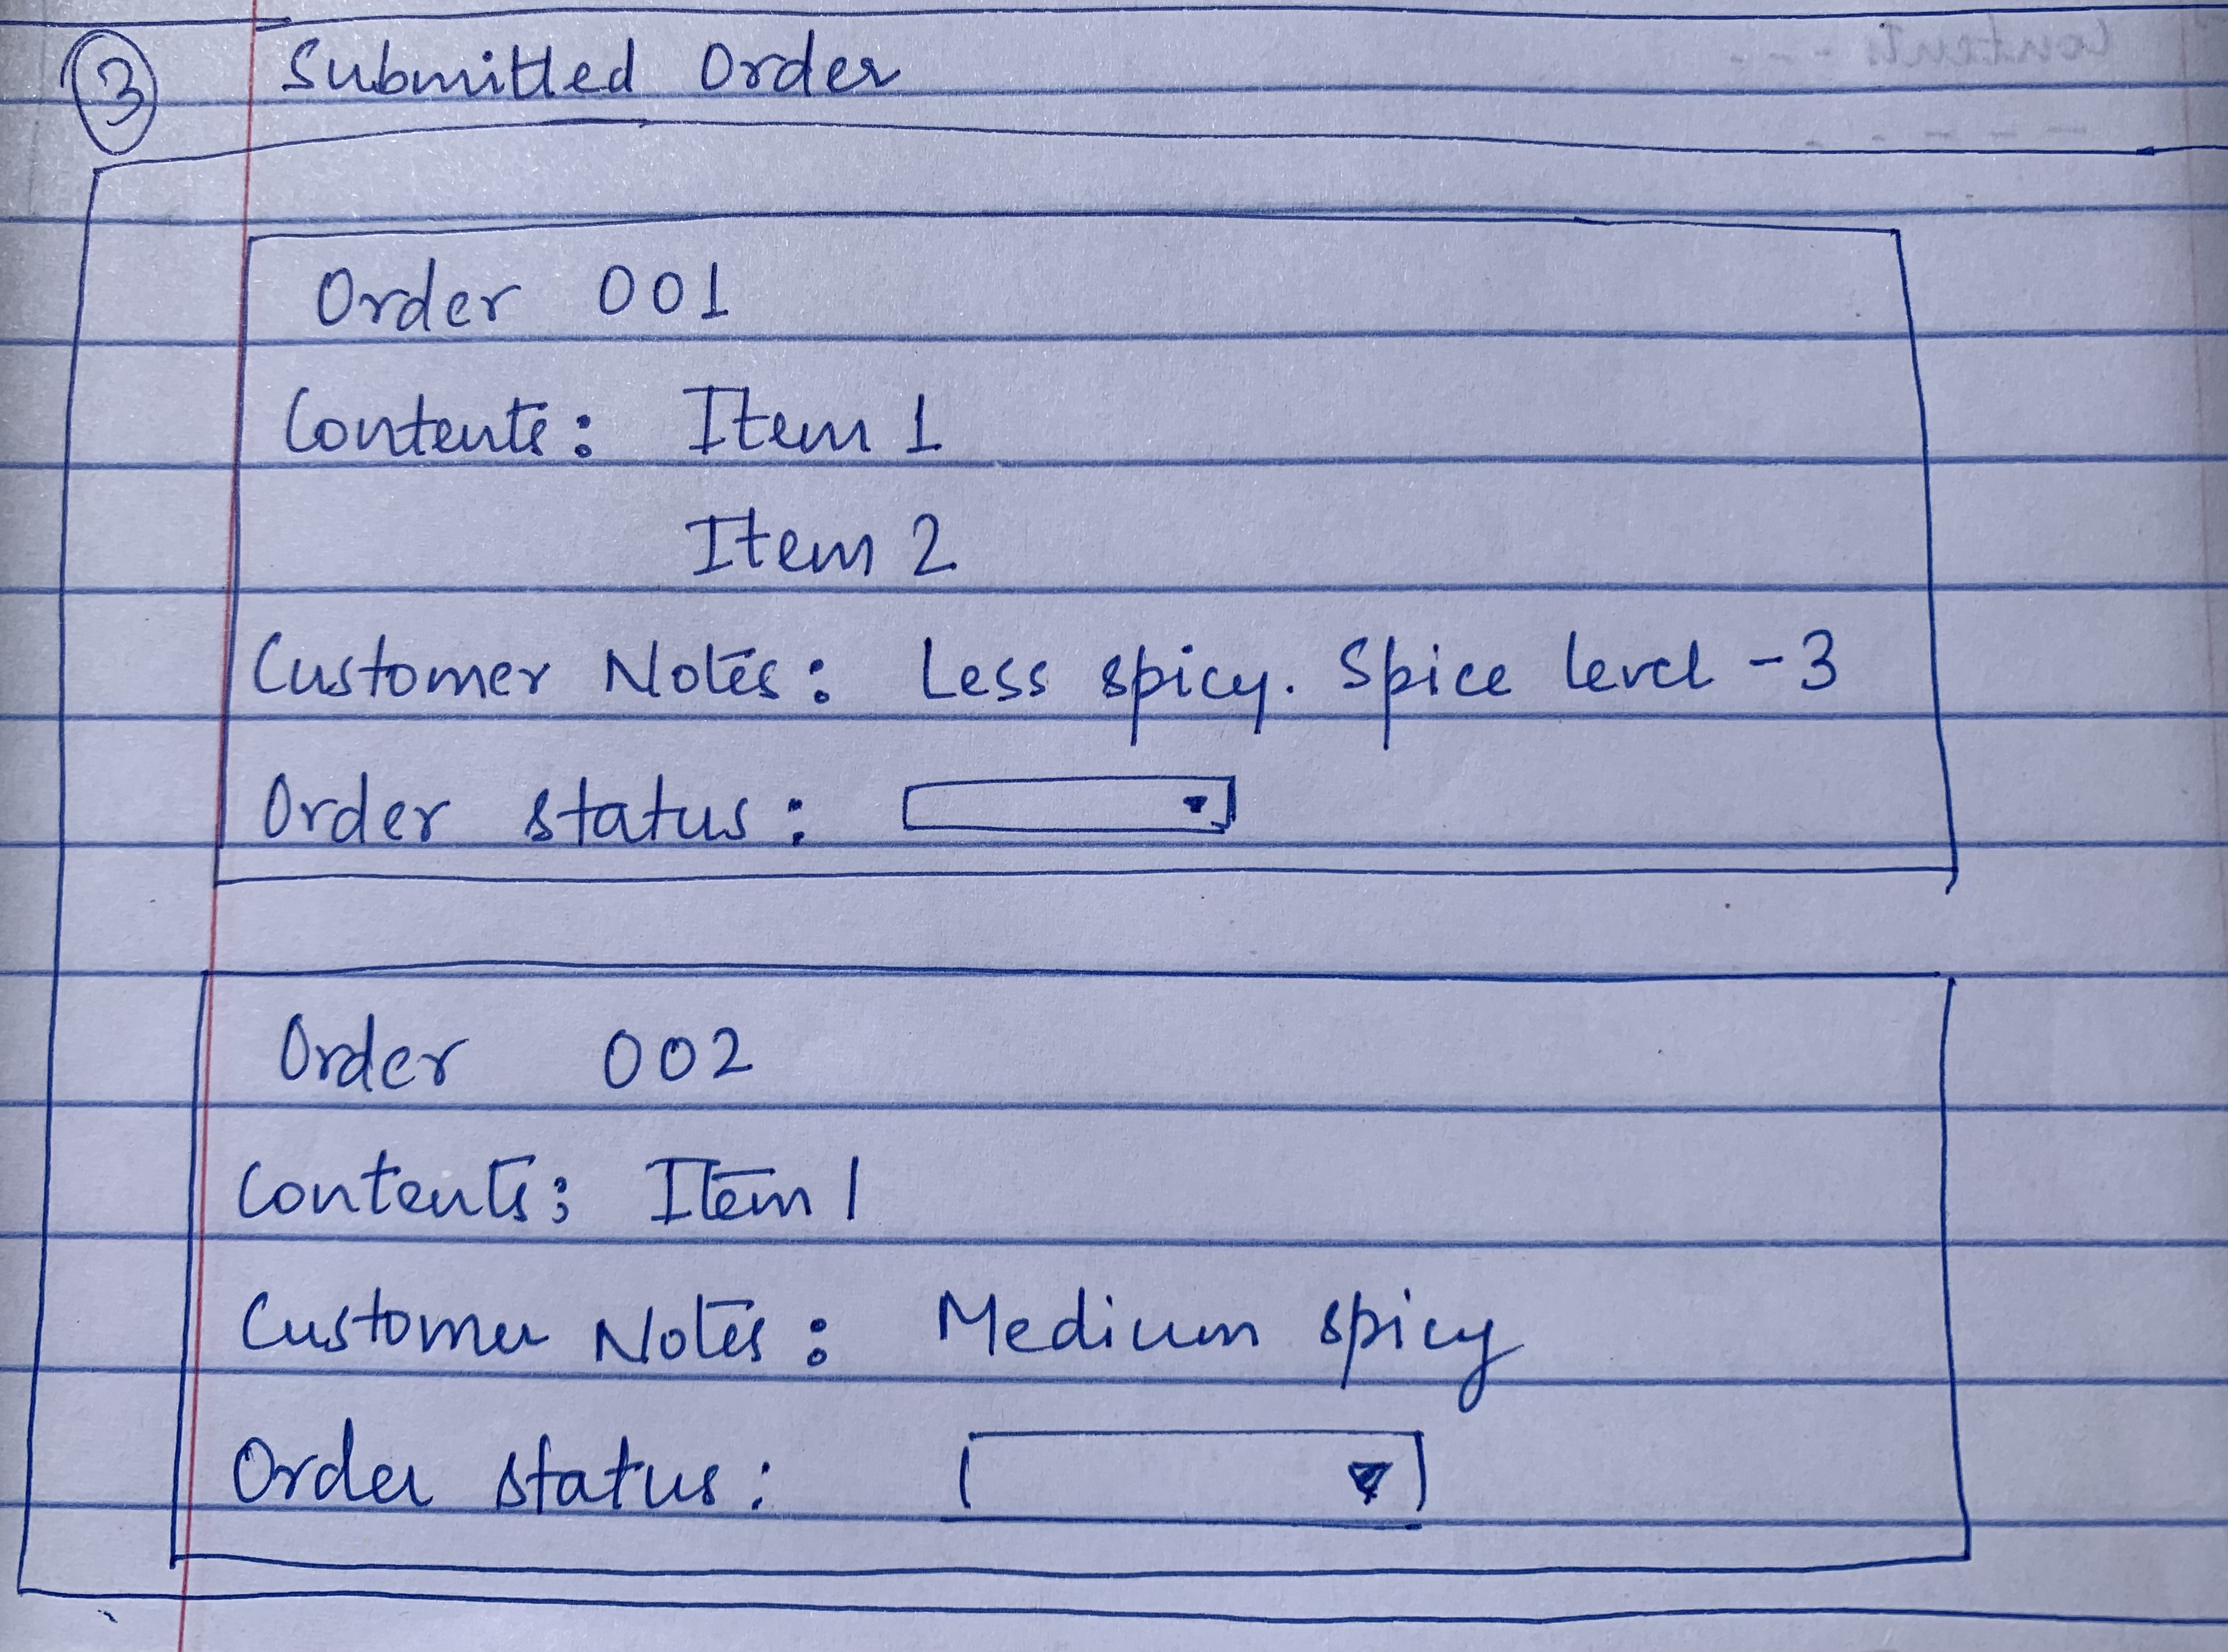 3 Submitted Order
Order 001
Contents: Item 1
Item 2
Customer Notes: Less spicy. Spice level -3
Order status:
Order 002
Contents: Item 1
Customer Notes: Medium spicy
Order status: